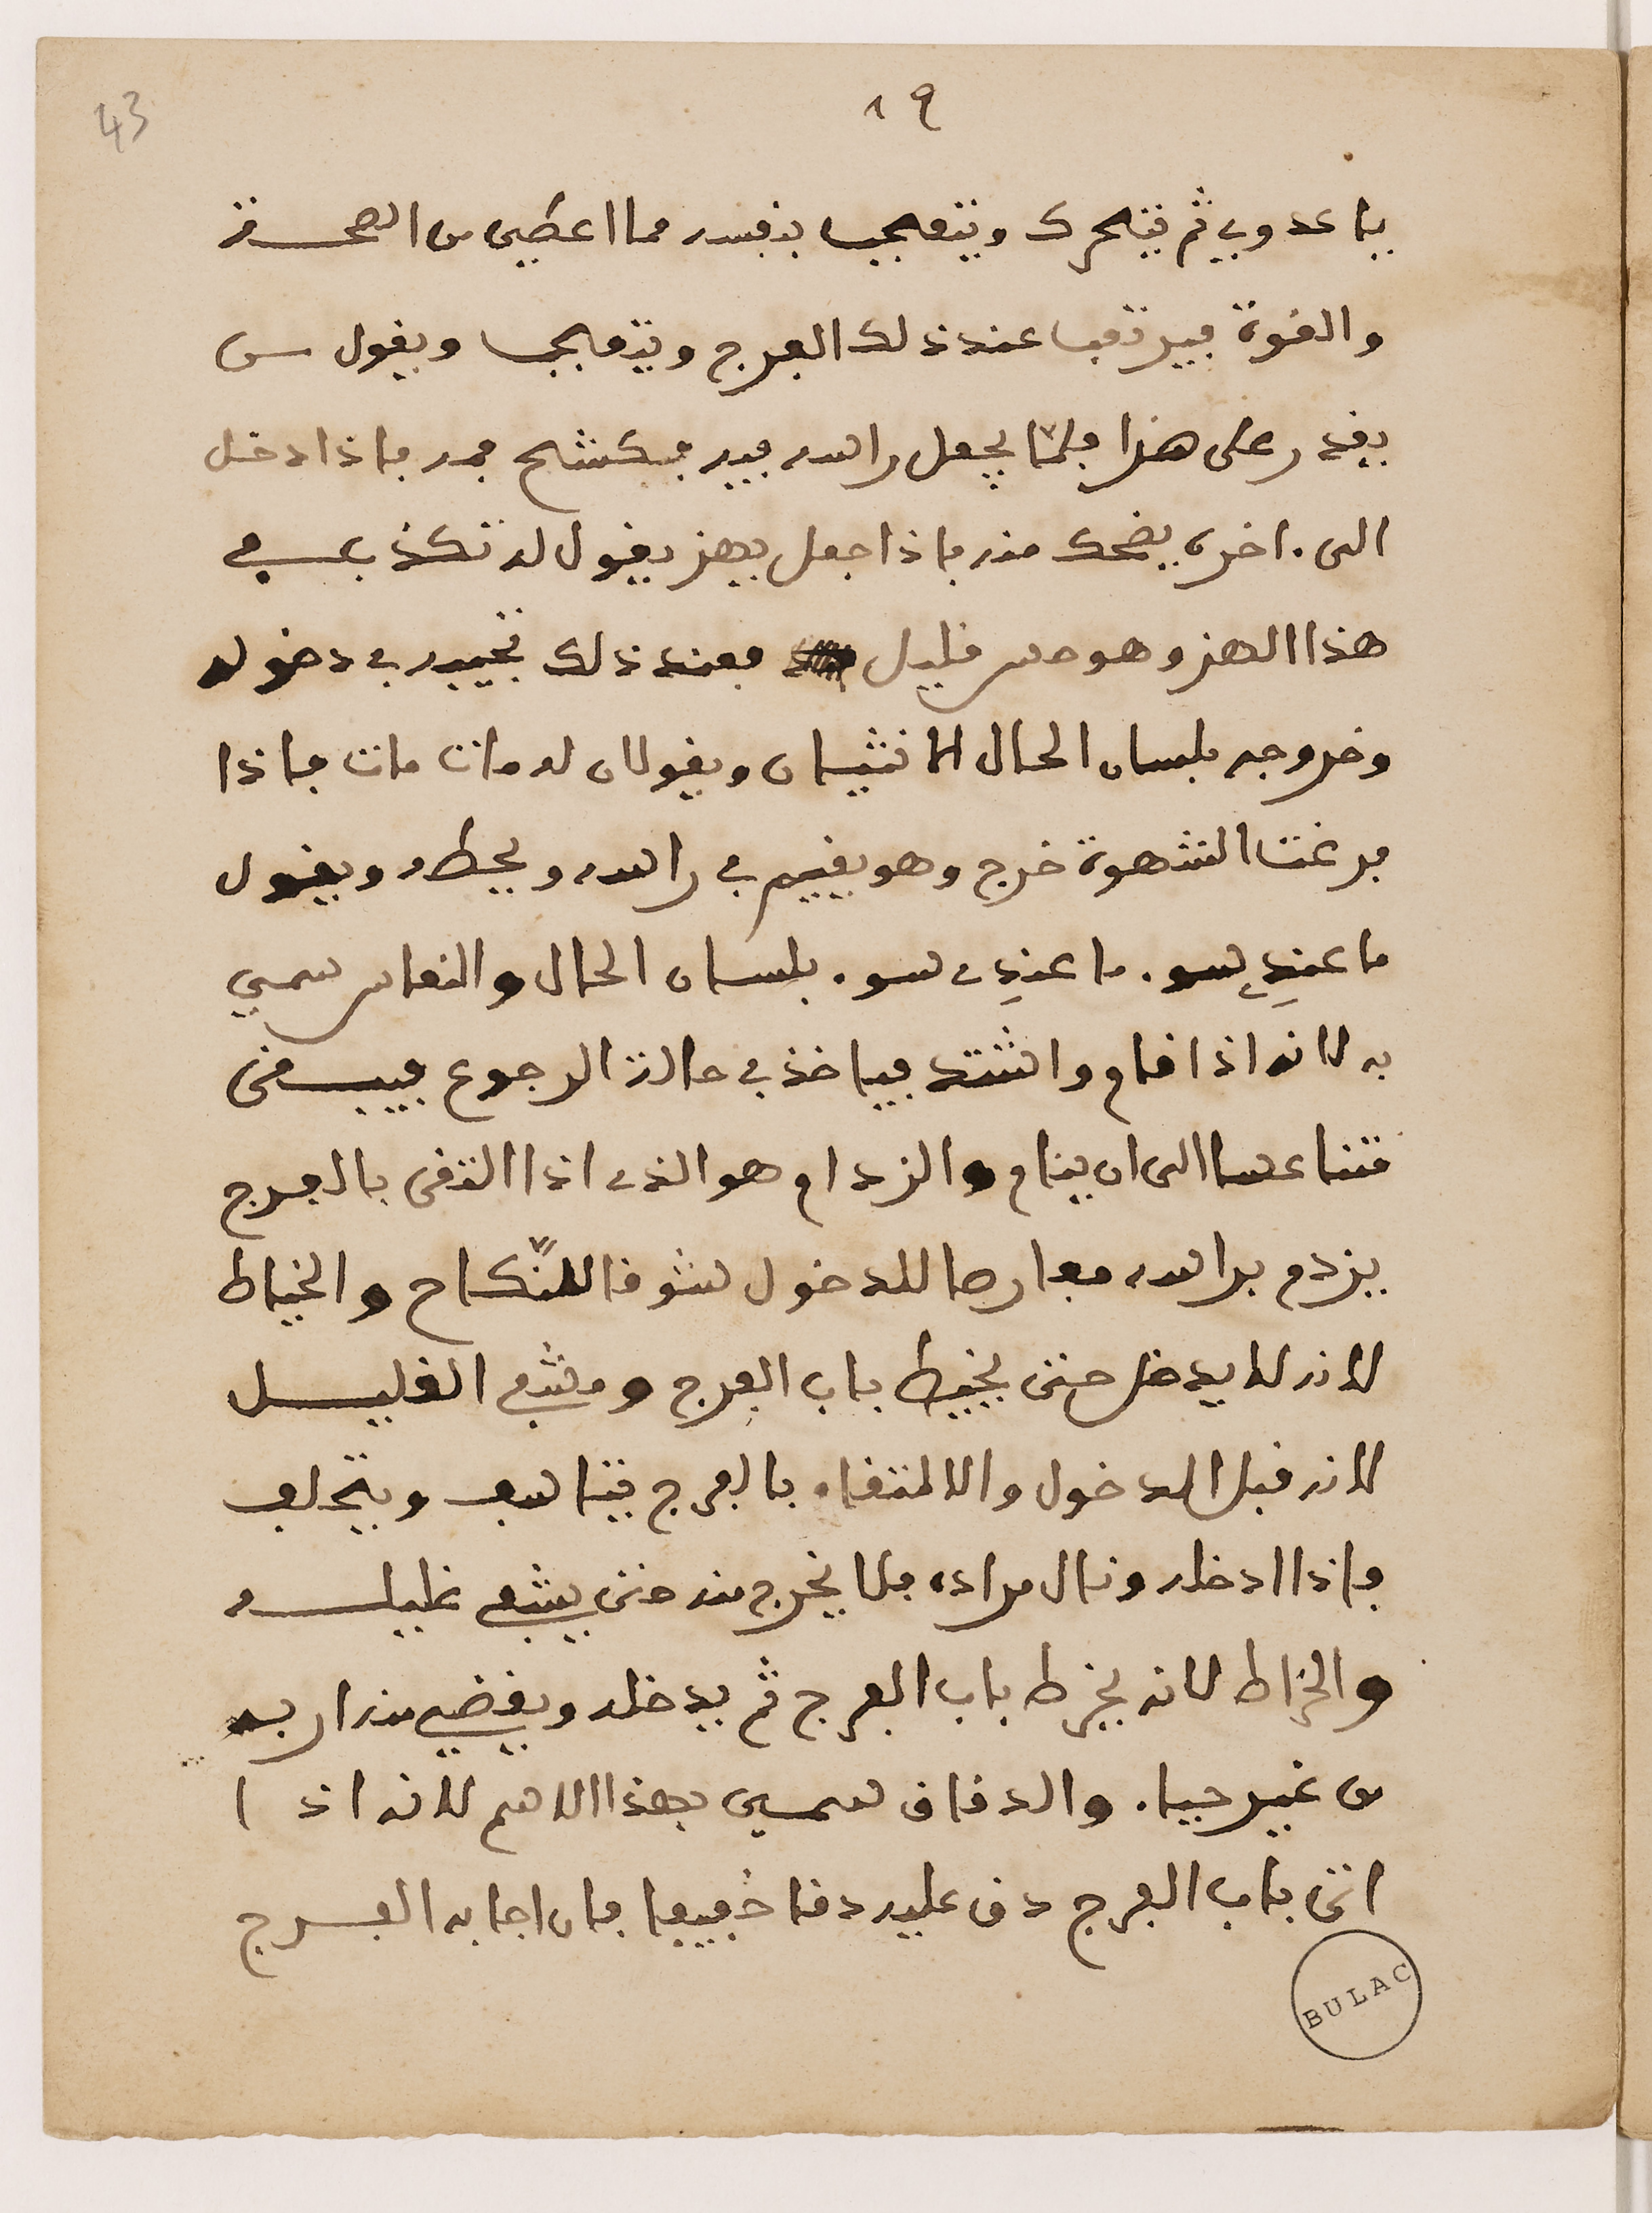 ٨٩
43
يا عدوي ثم يتحرك ويتعجب بنفسه مما اعطي من الصحة
والقوة فيرتعب عند ذلك الفرج ويتعجب ويقول من
يقدر على هذا فلما يجعل راسه فيه فيكشح فمه فاذا دخل
الى ٠ اخره يضحك منه فاذا جعل يهز يقول له تكذب في
هذا الهز وهو حس قليل فعند ذلك تجيبه في دخوله
وخروجه بلسان الحال الانثيان ويقولان له مات مات فاذا
فرغت الشهوة خرج وهو يقيم في راسه ويحطه ويقول
ما عندي سو ٠ ما عندي سو ٠ بلسان الحال والنعاس سمي
به لانه اذا قام واشتد فياخذ في حالة الرجوع فيبقى
متناعسا الى ان ينام والزدام هو الذي اذا التقى بالفرج
يزدم براسه معارصا للدخول شوقا للنكاح والخياط
لانه لا يدخل حتى يخيط باب الفرج ومشفي الغليل
لانه قبل الدخول والالتقاء بالفرج يتاسف ويتحلف
فاذا ادخله ونال مراده فلا يخرج منه حتى يشفي غليله
والخراط لانه يخرط باب الفرج ثم يدخله ويقضي منه اربه
من غير حيا ٠ والدقاق سمي بهذا الاسم لانه اذا
اتى باب الفرج دق عليه دقا خفيفا فان اجابه الفرج
BULAC